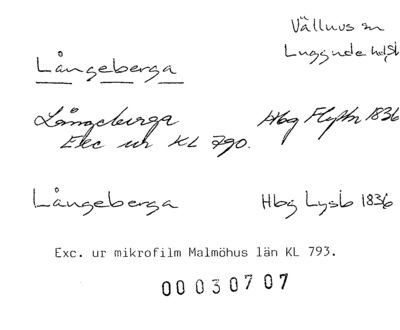 Välluvs sn
Luggude hd, Sk
Långeberga
Långeberga Hbg Flyttn 1836
Exc ur KL 790.
Långeberga Hbg Lysb 1836
Exc. ur mikrofilm Malmöhus län KL 793.
00030707